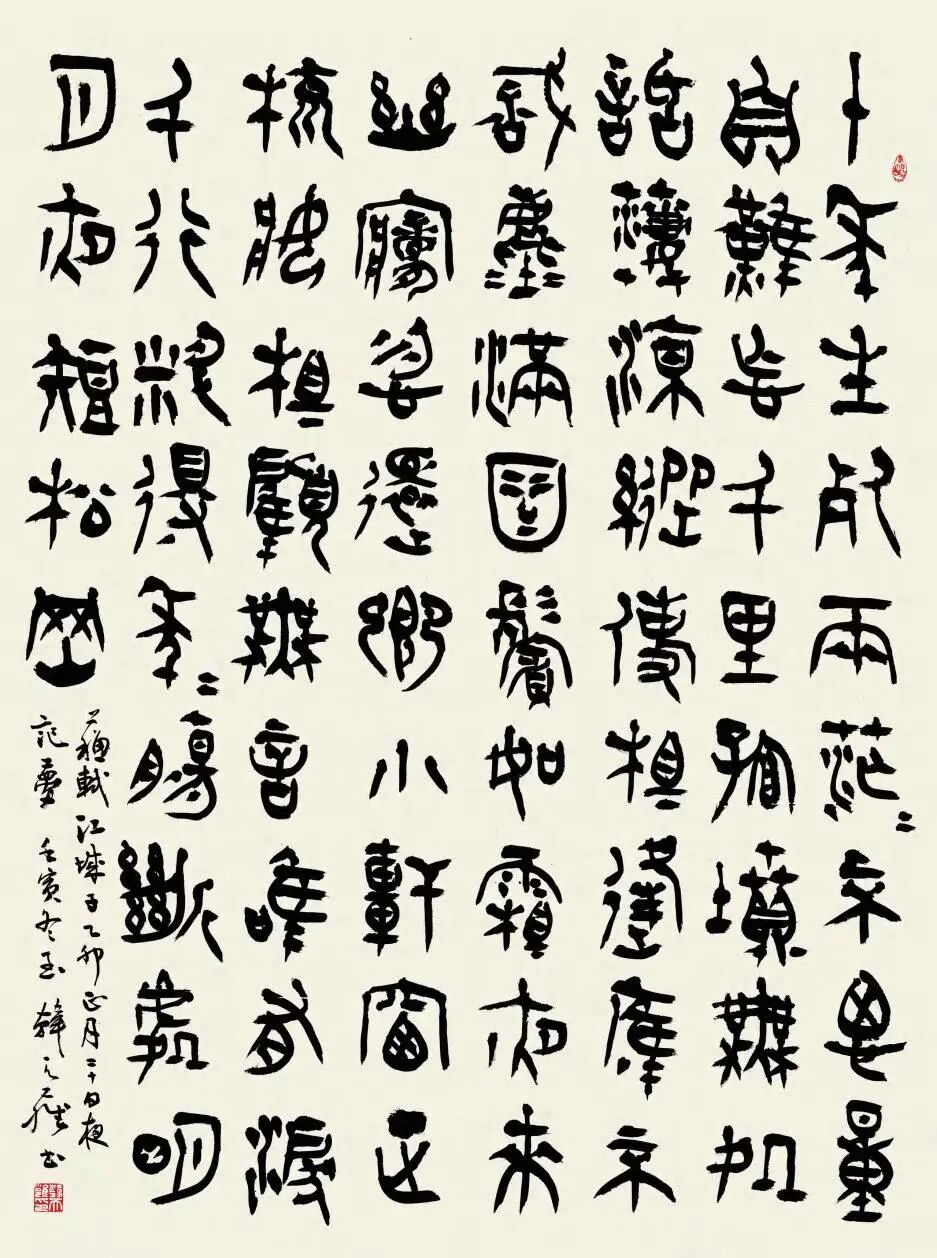 十年生死兩茫〻不思量
自難忘千里孤墳無処
話淒涼縱使相逢應不
識塵滿面鬢如霜夜來
幽夢忽還鄉小軒窗正
梳妝相顧無言唯有淚
千行料得年〻腸斷處明
月夜短松岡
蘇軾江城子乙卯正月二十日夜
記夢壬寅冬至韓書